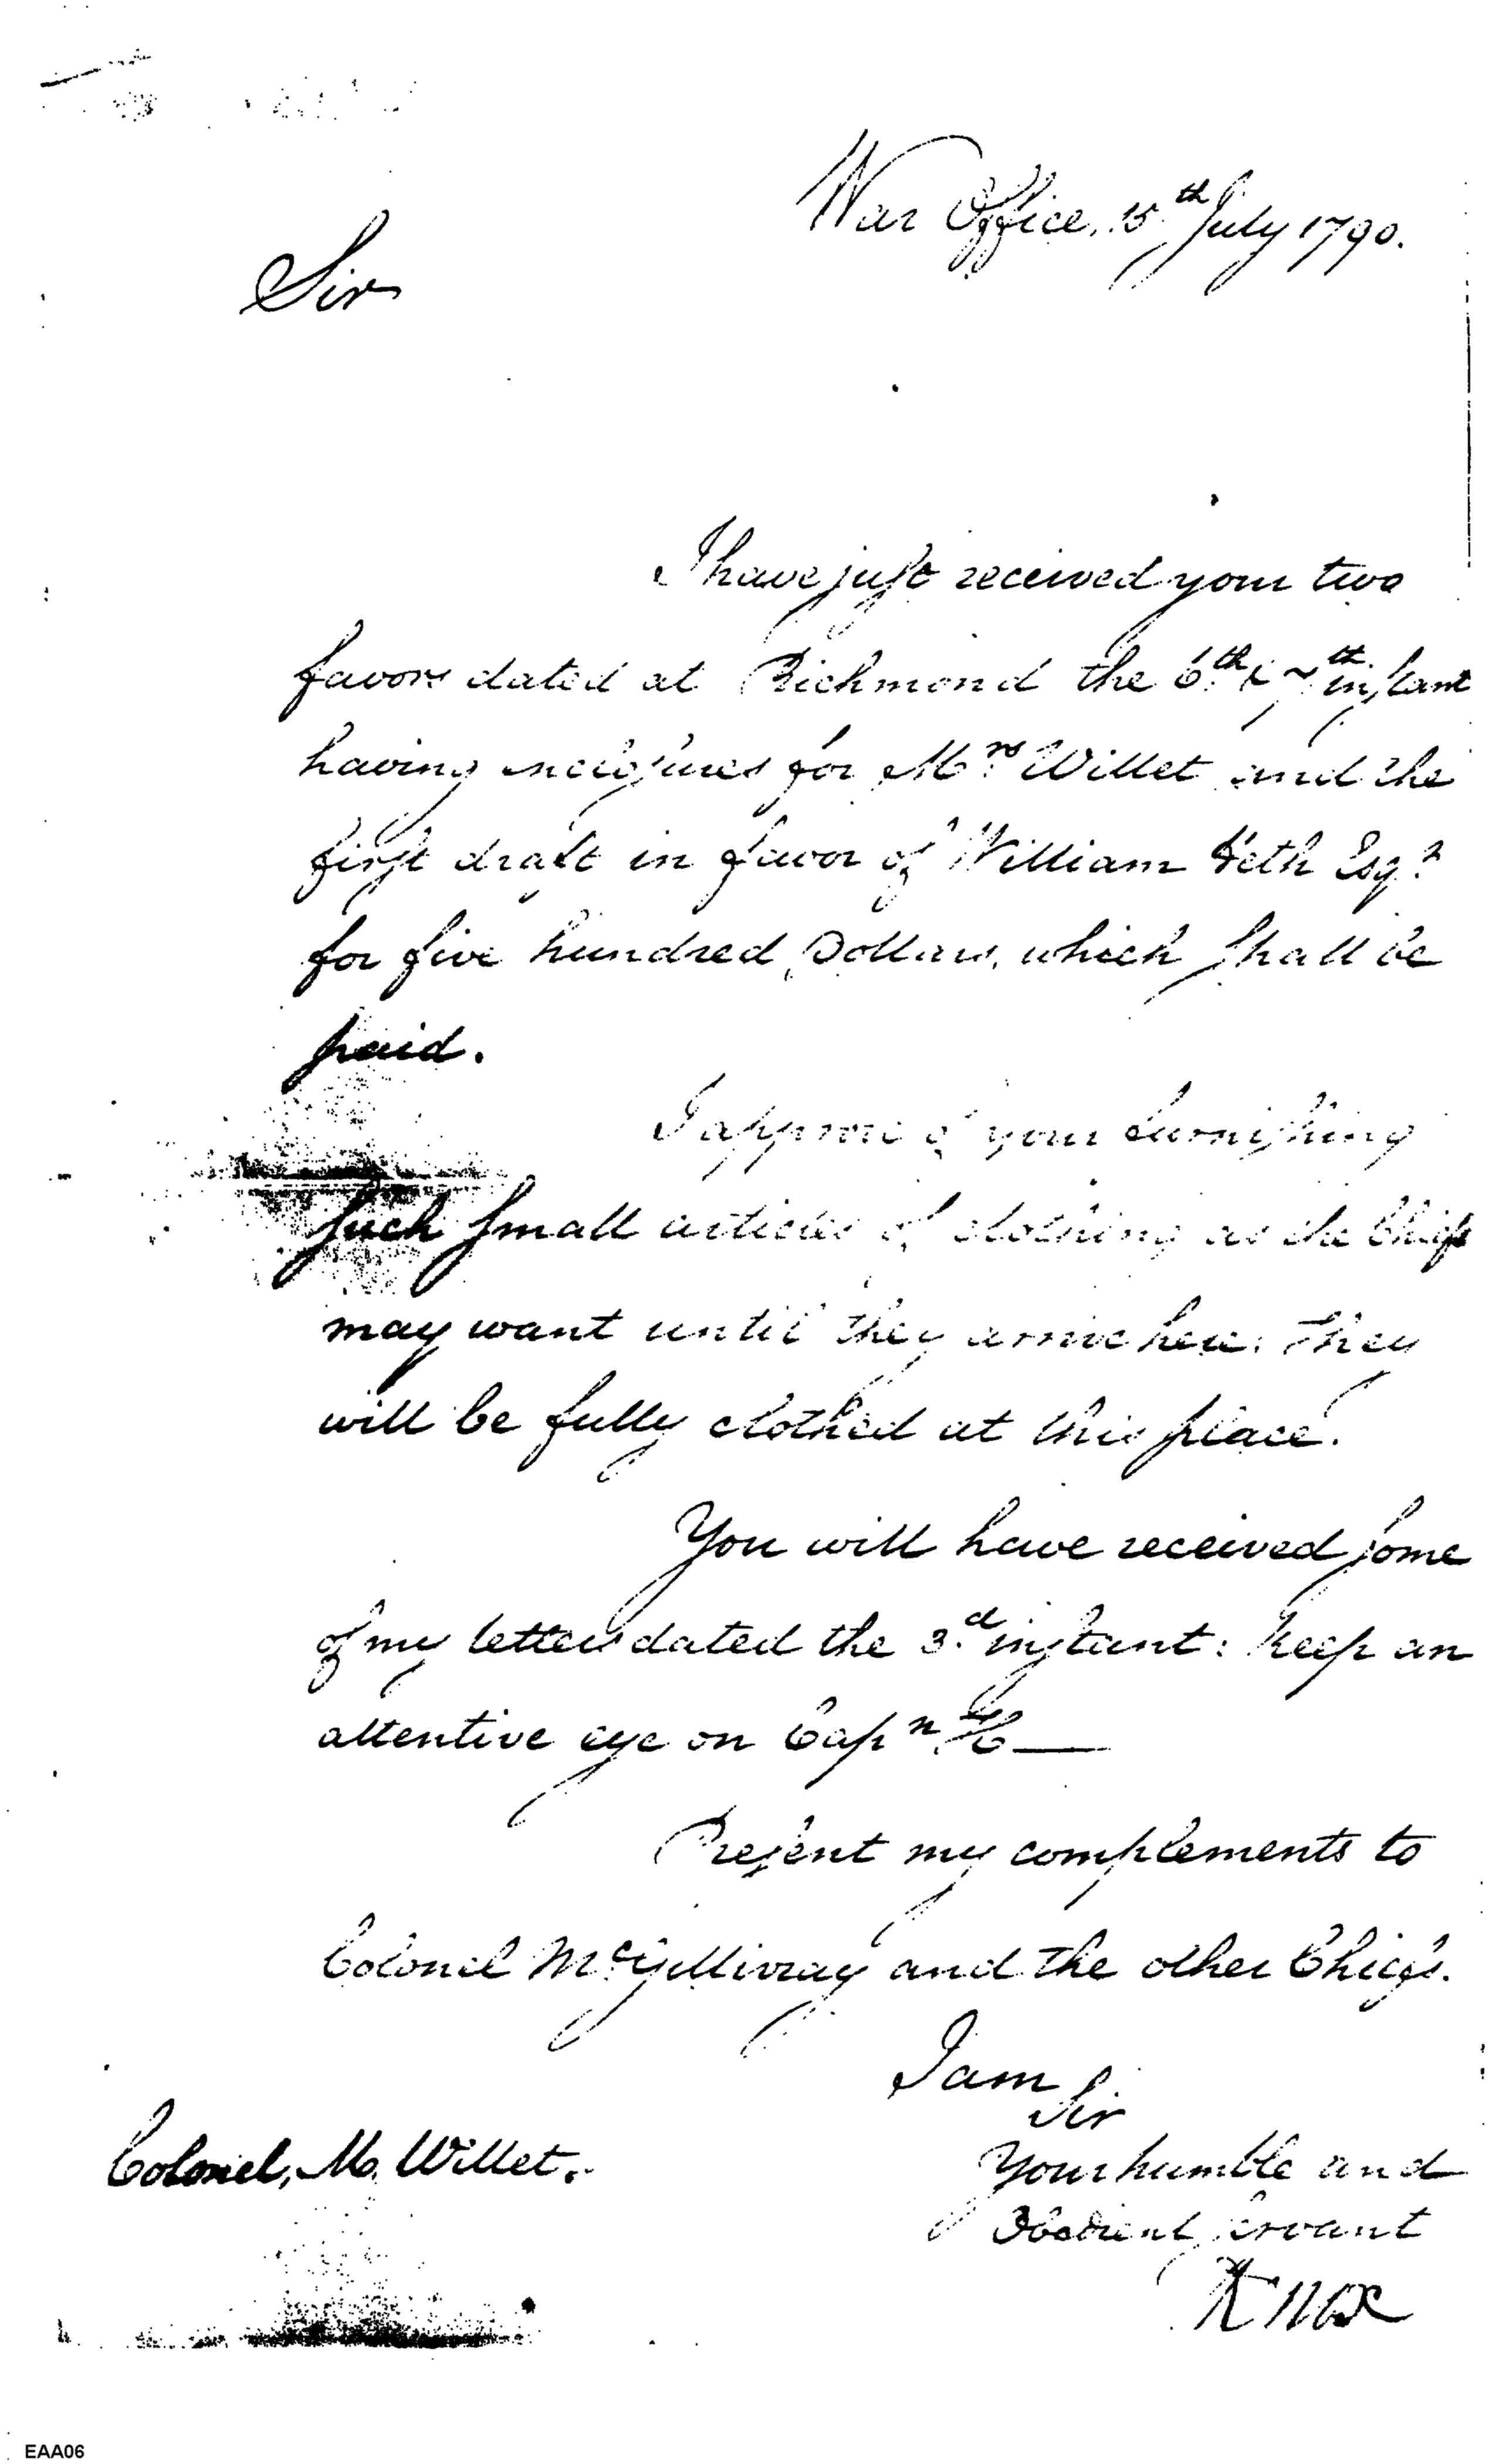 War Office, 15th July 1790.
Sir
I have just received your two
favors dated at Richmond the 6th & 7th instant
having inclosures for Mrs Willet and the
first draft in favor of William Heth Esqr
for five hundred Dollars, which shall be
paid.
I approve of your furnishing
such small articles of clothing as the Chiefs
may want until they arrive here: They
will be fully clothed at this place.
You will have received some
of my letters dated the 3d instant: Keep an
attentive eye on Capn
Present my complements to
Colonel McGillivray and the other Chiefs.
I am
Sir
Your humble and
Obedient servant
Knox
Colonel, M. Willet.
EAA06